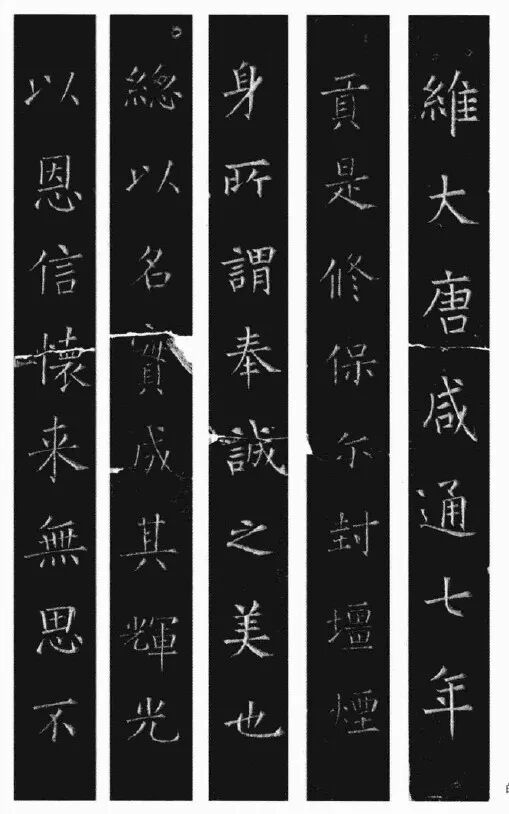 維大唐咸通七年
貢是修保尔封壇煙
身所謂奉誠之美也
總以名實成其輝光
以恩信懷来無思不